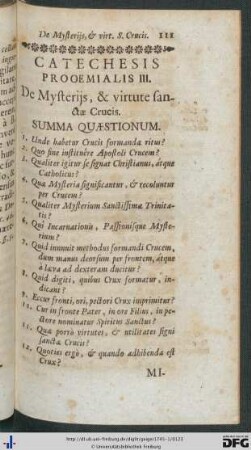 De Mysterijs, & virt. S. Crucis. 111
CATECHESIS
PROOEMIALIS III.
De Mysterijs, & virtute san-
ctæ Crucis.
SUMMA QUÆSTIONUM.
1. Unde habetur Crucis formandæ ritus?
2. Quo fine instituêre Apostoli Crucem?
3. Qualiter igitur se signat Christianus, atque
Catholicus?
4. Quæ Mysteria significantur, & recoluntur
per Crucem?
5. Qualiter Mysterium Sanctissimæ Trinita-
tis?
6. Qui Incarnationis, Passionisque Myste-
rium?
7. Quid innuit methodus formandi Crucem,
dum manus deorsum per frontem, atque
à læva ad dexteram ducitur?
8. Quid digiti, quibus Crux formatur, in-
dicant?
9. Ecxur fronti, ori, pectori Crux imprimitur?
10. Cur in fronte Pater, in ore Filius, in pe-
ctore nominatur Spiritus Sanctus?
11. Quæ porrò virtutes, & utilitates signi
sanctæ Crucis?
12. Quoties ergò, & quando adhibenda est
Crux?
MI-
http://dl.ub.uni-freiburg.de/diglit/goajer1745-1/0133
© Universitätsbibliothek Freiburg
gefördert durch die
DFG